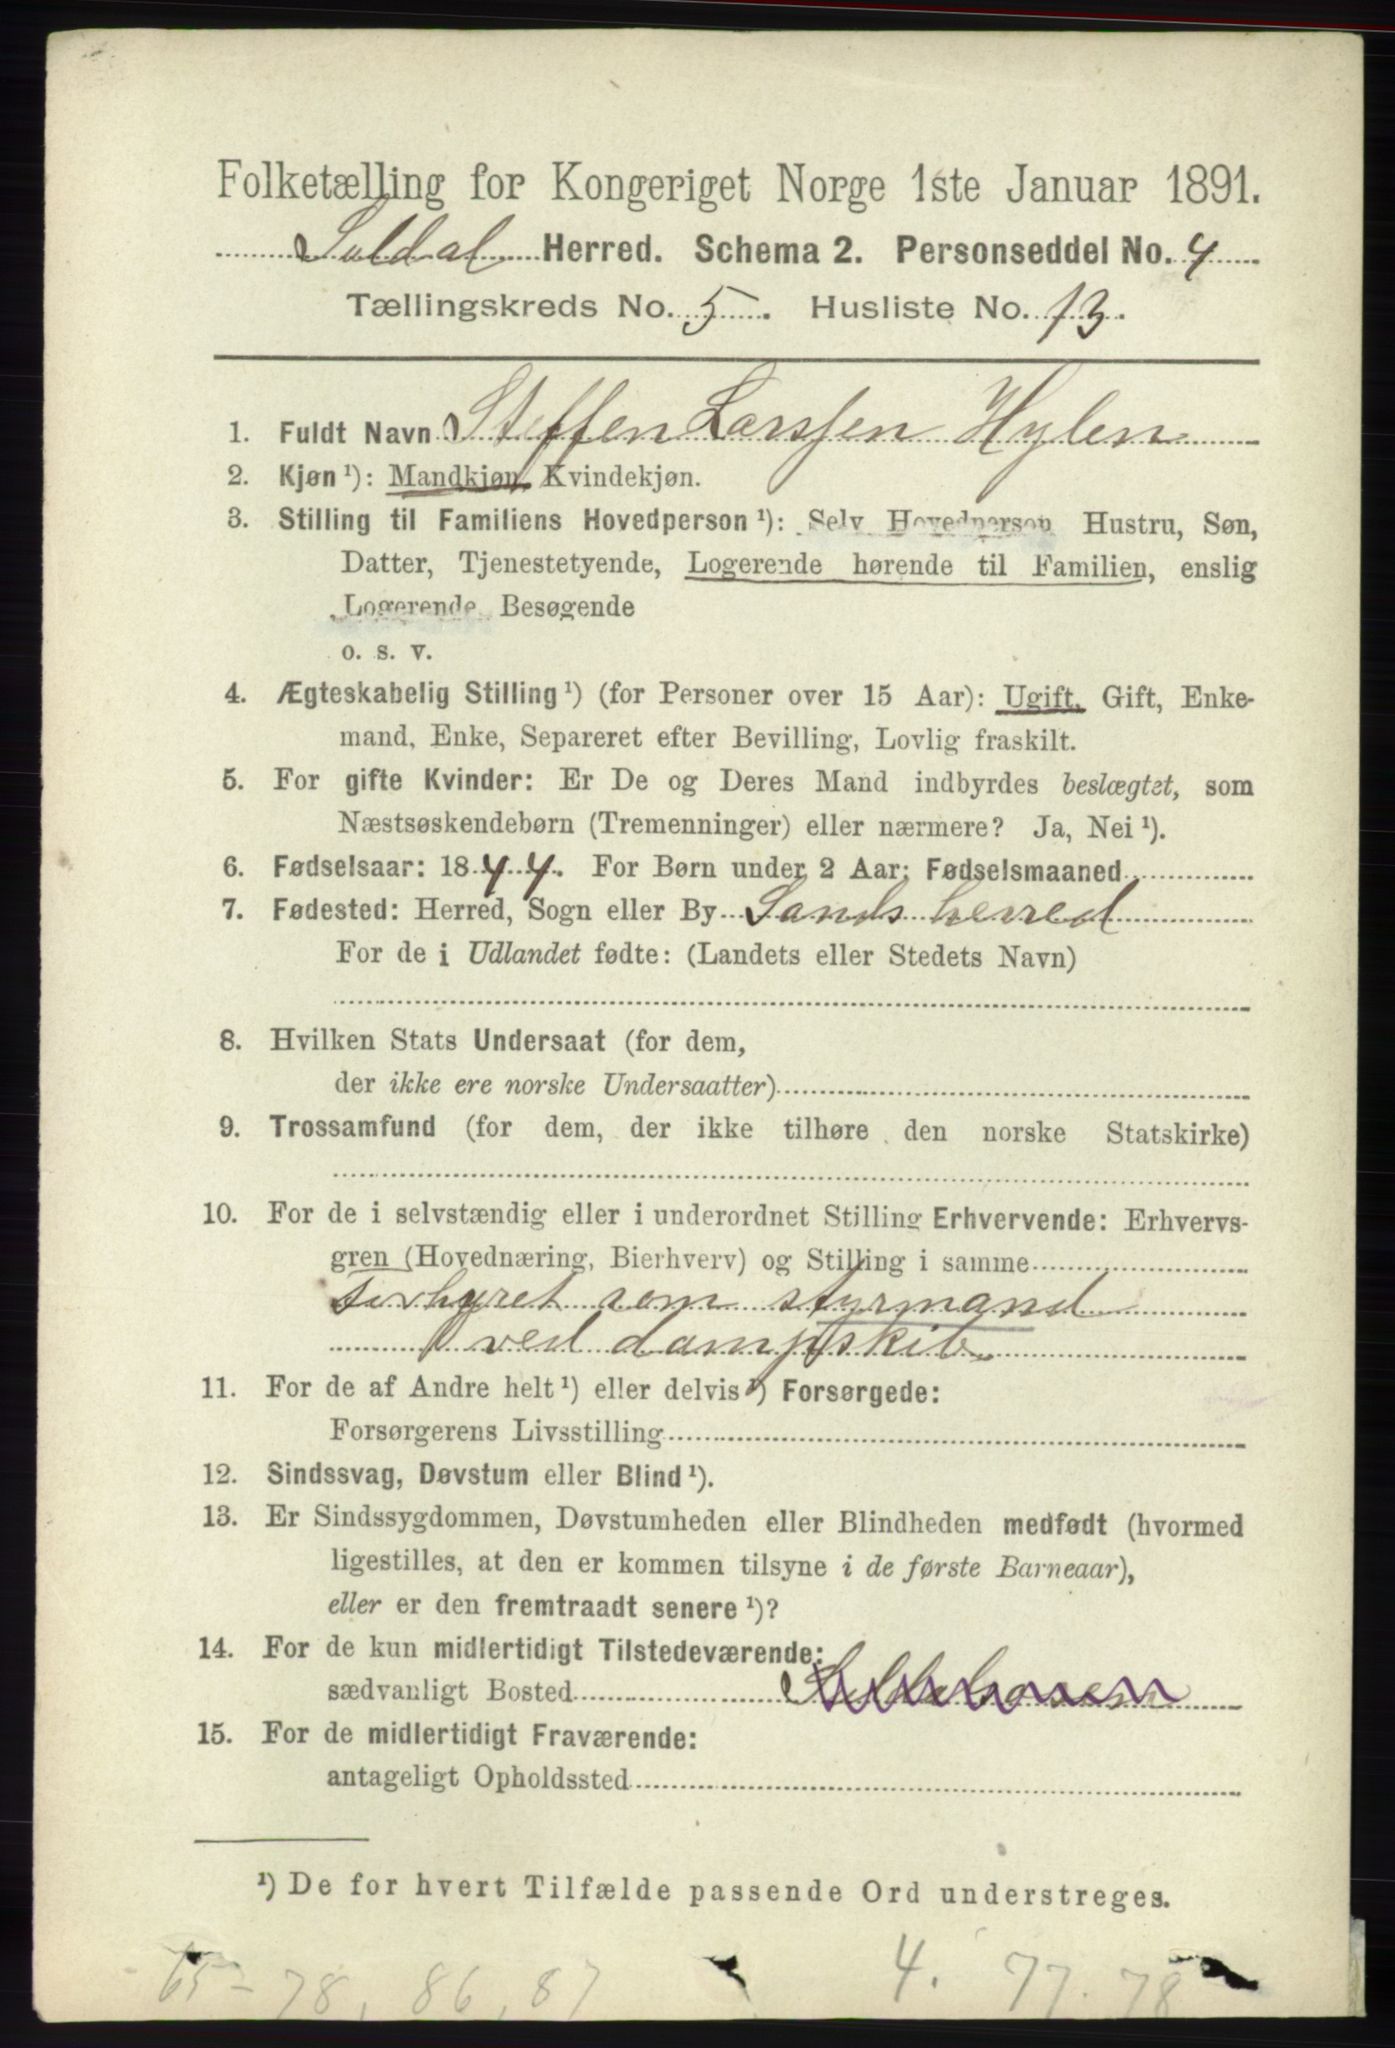 Folketælling for Kongeriget Norge 1ste Januar 1891.
Suldal Herred. Schema 2. Personseddel No. 4
Tællingskreds No. 5. Husliste No. 13.
1. Fuldt Navn Steffen Larssen Hylen
2. Kjøn ¹): Mandkjøn, Kvindekjøn.
3. Stilling til Familiens Hovedperson ¹): Selv Hovedperson Hustru, Søn,
Datter, Tjenestetyende, Logerende hørende til Familien, enslig
Logerende Besøgende
o. s. v.
4. Ægteskabelig Stilling ¹) (for Personer over 15 Aar): Ugift, Gift, Enke-
mand, Enke, Separeret efter Bevilling, Lovlig fraskilt.
5. For gifte Kvinder: Er De og Deres Mand indbyrdes beslægtet, som
Næstsøskendebørn (Tremenninger) eller nærmere? Ja, Nei ¹).
6. Fødselsaar: 1844. For Børn under 2 Aar: Fødselsmaaned
7. Fødested: Herred, Sogn eller By Sands herred
For de i Udlandet fødte: (Landets eller Stedets Navn)
8. Hvilken Stats Undersaat (for dem,
der ikke ere norske Undersaatter)
9. Trossamfund (for dem, der ikke tilhøre den norske Statskirke)
10. For de i selvstændig eller i underordnet Stilling Erhvervende: Erhvervs-
gren (Hovednæring, Bierhverv) og Stilling i samme
forhyret som styrmand
ved dampskib
11. For de af Andre helt ¹) eller delvis ¹) Forsørgede:
Forsørgerens Livsstilling
12. Sindssvag, Døvstum eller Blind ¹).
13. Er Sindssygdommen, Døvstumheden eller Blindheden medfødt (hvormed
ligestilles, at den er kommen tilsyne i de første Barneaar),
eller er den fremtraadt senere ¹)?
14. For de kun midlertidigt Tilstedeværende:
sædvanligt Bosted Suldalsosen
15. For de midlertidigt Fraværende:
antageligt Opholdssted
¹) De for hvert Tilfælde passende Ord understreges.
65-78, 86, 87 4. 77. 78